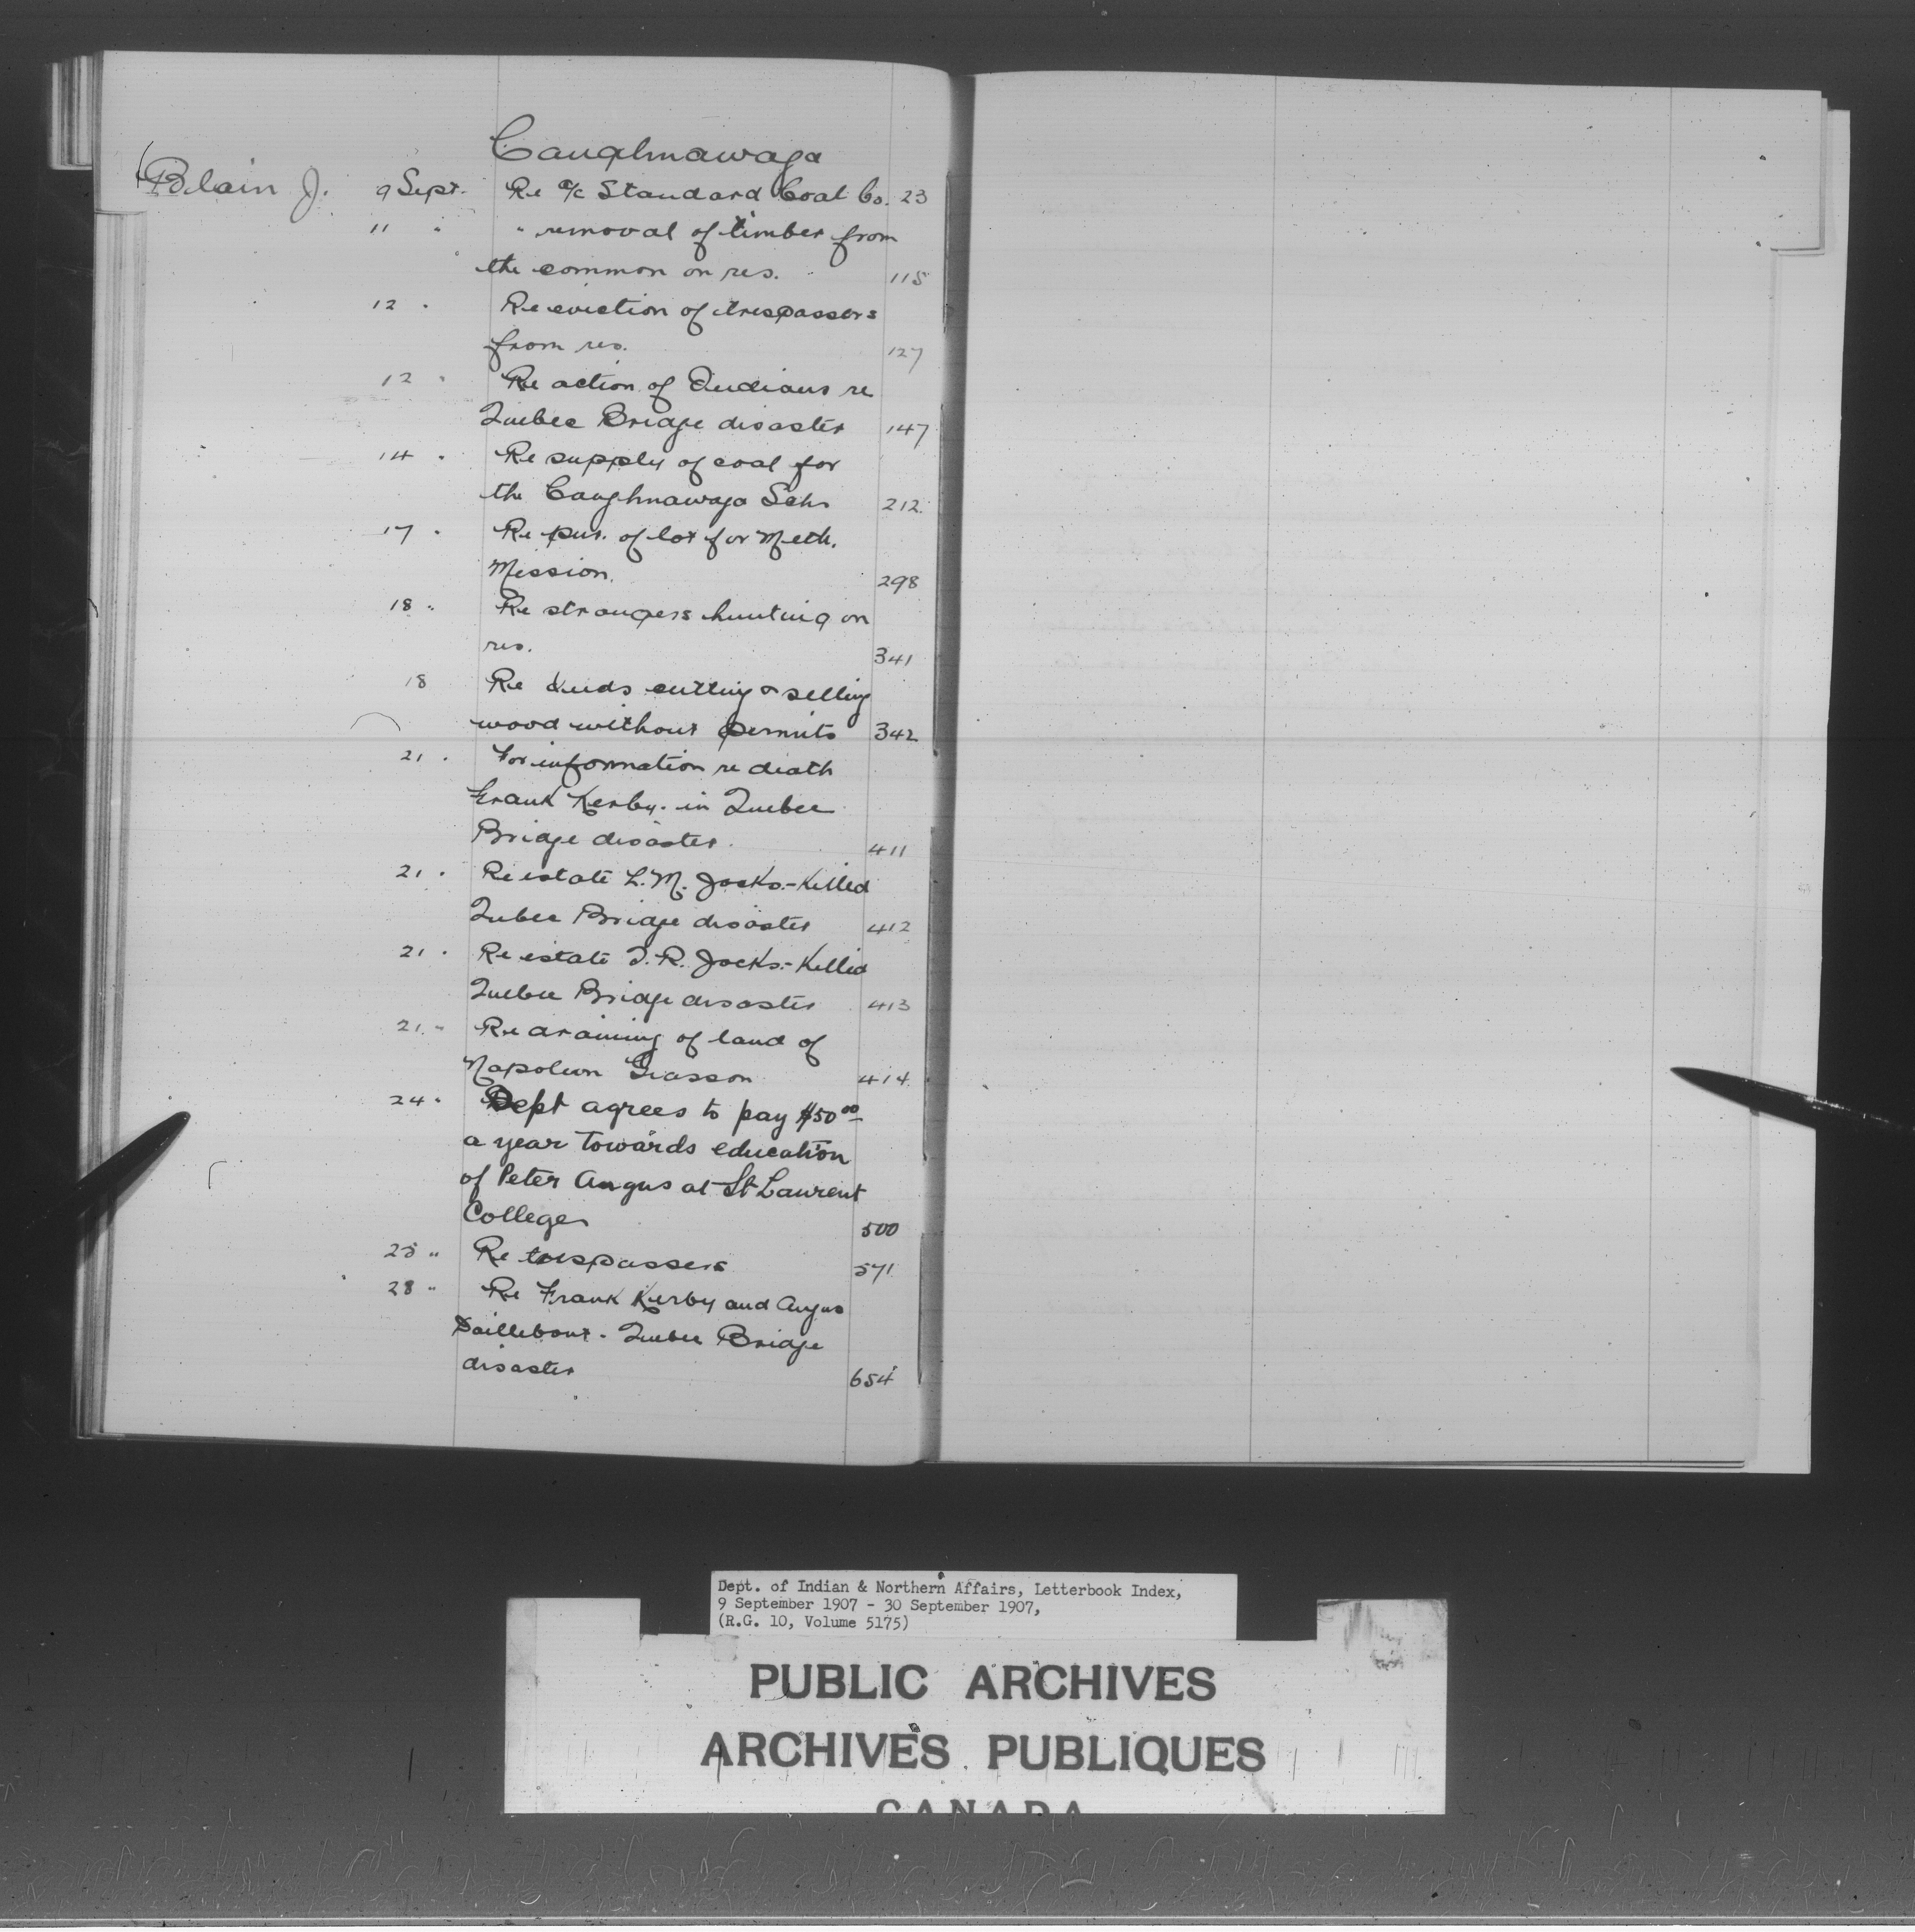 Caughnawaga
Blain J. 9 Sept. Re a/c Standard Coal Co. 23
11 " " removal of timber from
the common on res. 115
12 " Re eviction of trespassers
from res. 127
12 " Re action of Indians re
Quebec Bridge disaster 147
14 " Re supply of coal for
the Caughnawaga Schs 212
17 " Re pur. of lot for Meth.
Mission. 298
18 " Re strangers hunting on
res. 341
18 Re Inds cutting & selling
wood without permits 342
21 " For information re death
Frank Kerby. in Quebec
Bridge disaster. 411
21 " Re estate L. M. Jocks.- Killed
Qubec Bridge disaster 412
21 " Re estate J. R. Jocks.- Killed
Quebec Bridge disaster 413
21 " Re draining of land of
Napoleon Giasson 414
24 " Dept agrees to pay $50 00
a year towards education
of Peter Angus at St Laurent
College 500
25 " Re trespassers 571
28 " Re Frank Kerby and Angus
Daillebout - Quebec Bridge
disaster 654
Dept. of Indian & Northern Affairs, Letterbook Index,
9 September 1907 - 30 September 1907,
(R.G. 10, Volume 5175)
PUBLIC ARCHIVES
ARCHIVES PUBLIQUES
CANADA